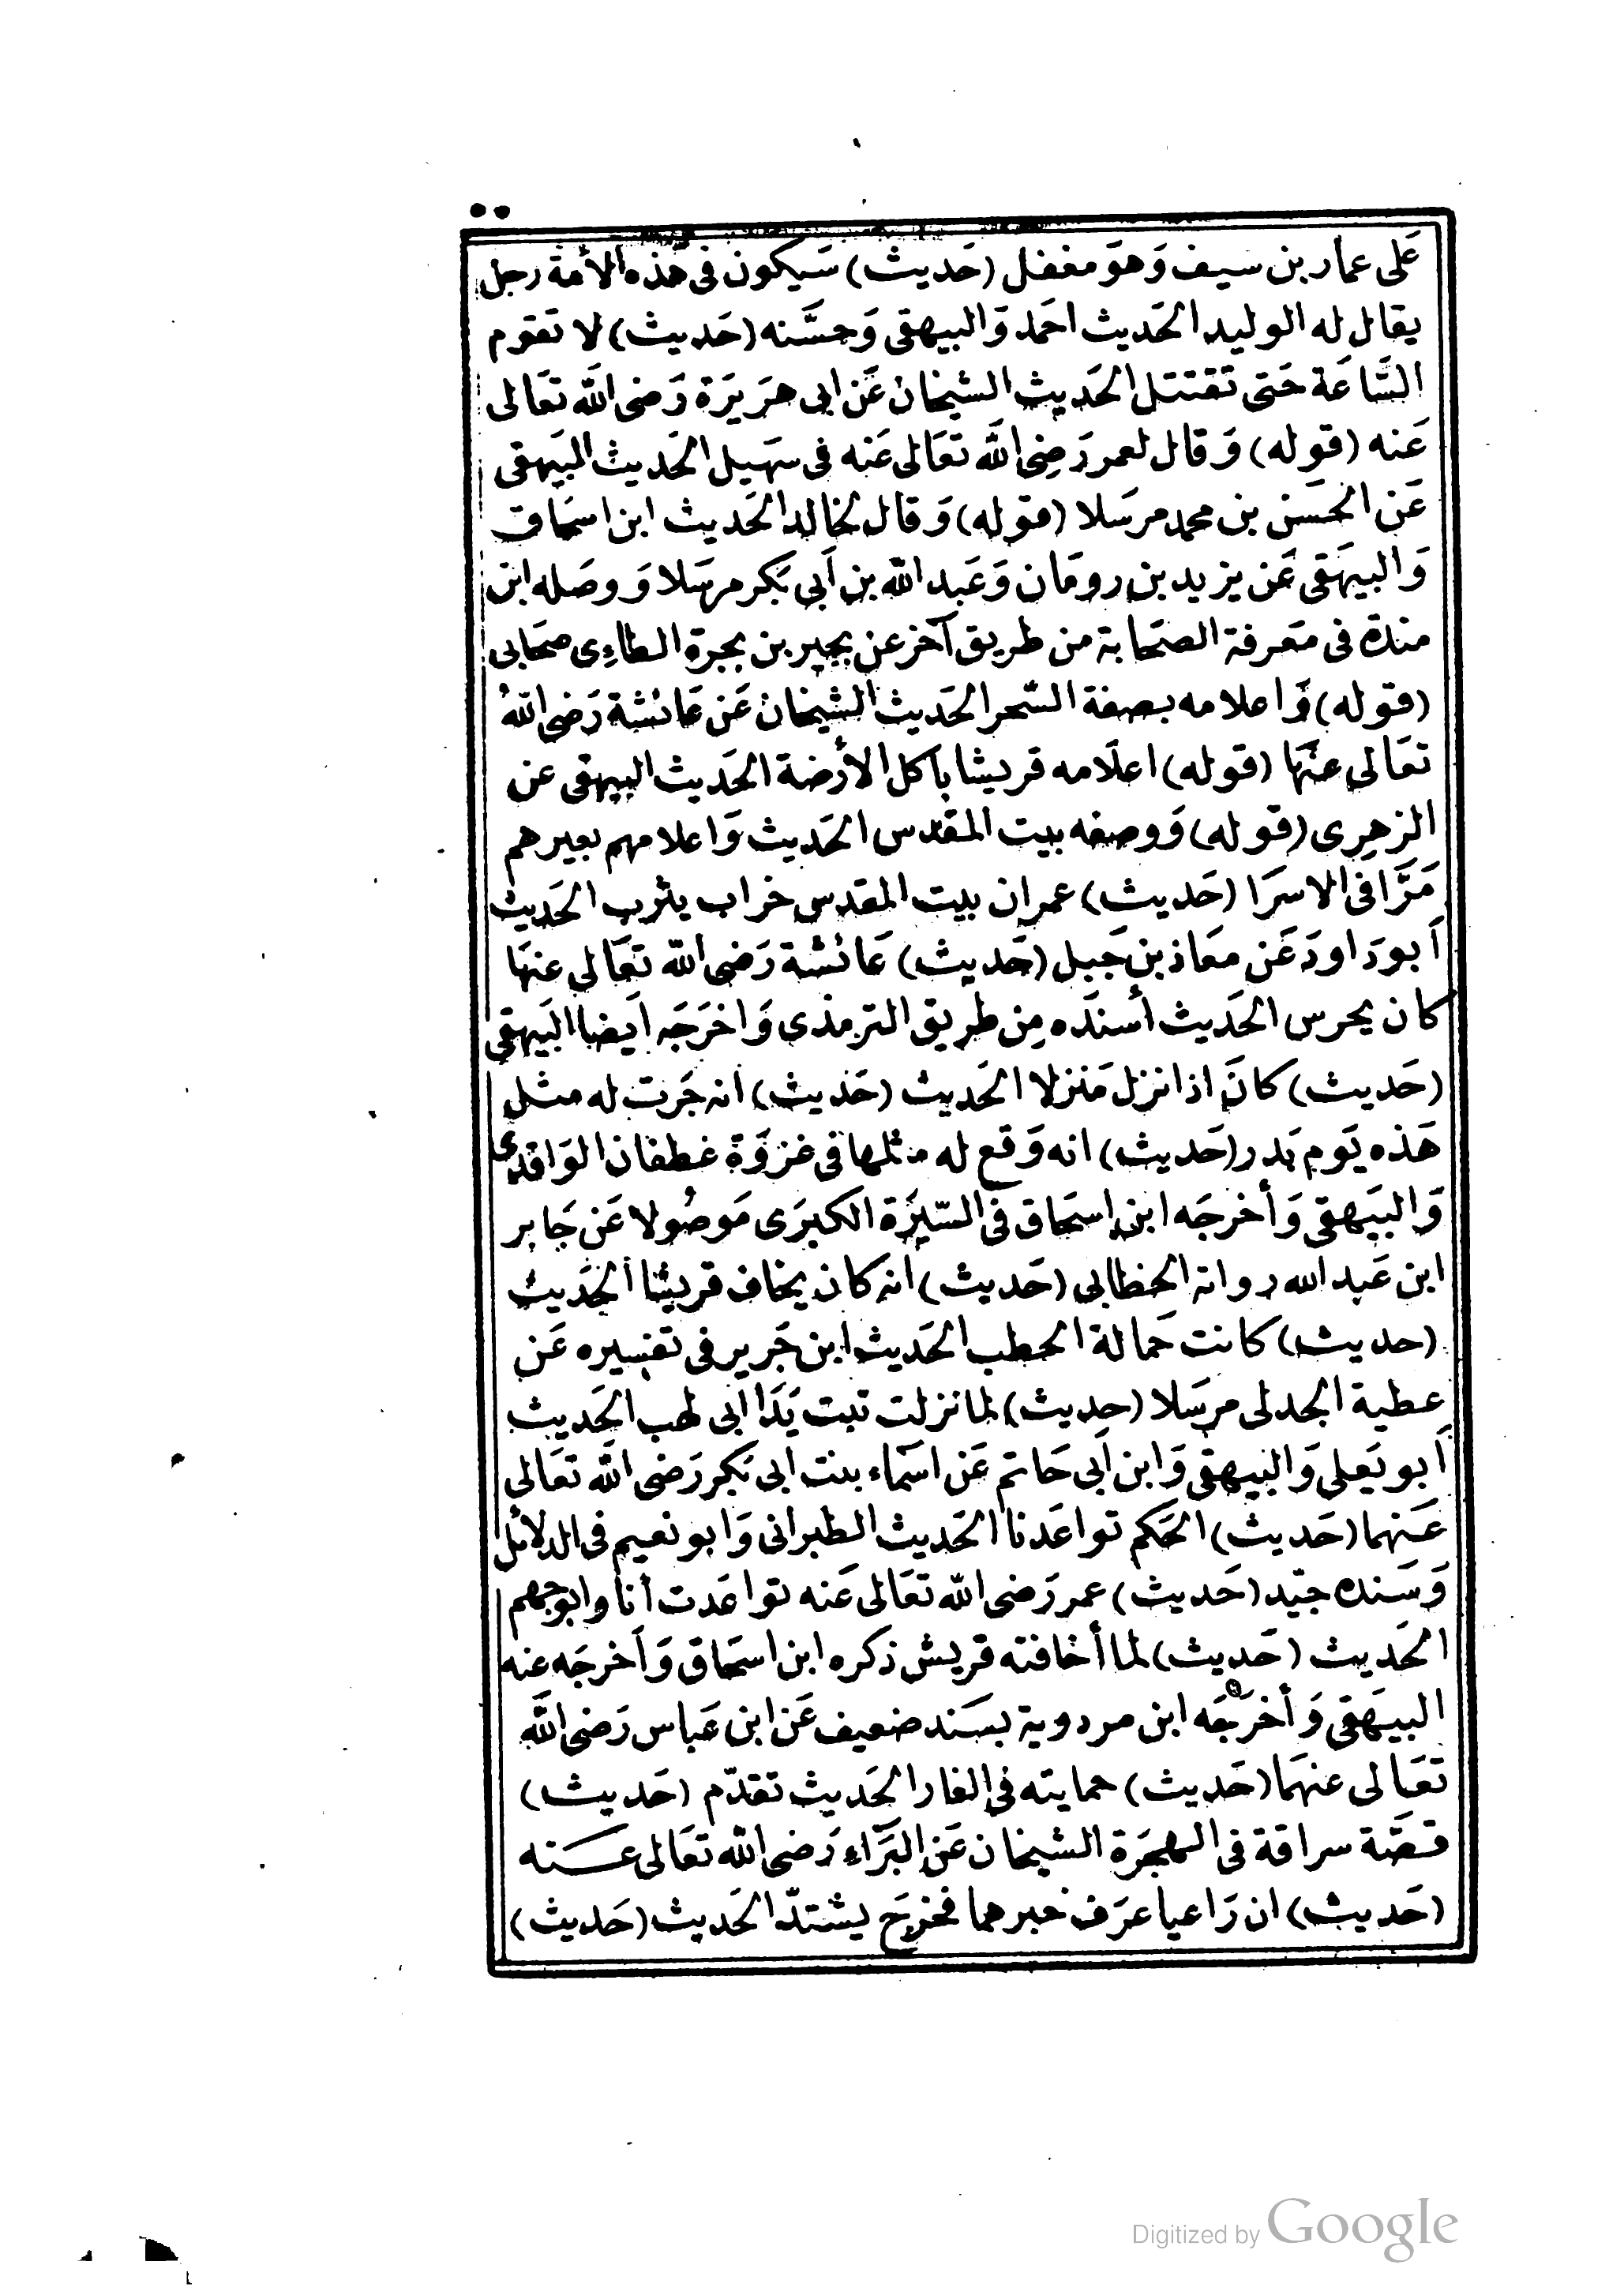 ٥٥
عَلى عمار بن سيف وَهوَ مغفل (حَديث) سَيكون فى هَذه الأمة رجل
يقال له الوليد الحَديث احَمد وَالبيهقى وَحسَّنه (حَديث) لا تقوم
السَّاعَة حَتى تقتتل الحَديث الشيخان عَن ابى هرَيرَة رَضى الله تعَالى
عَنه (قوله) وَقال لعمر رَضِى الله تعَالى عَنه فى سهَيل الحَديث البَيهقى
عَن الحسَن بن محمد مرسَلا (قوله) وَقال لخالد الحَديث ابن اسحَاق
وَالبيهَقى عَن يزيد بن رومَان وَعَبد الله بن أبى بَكر مرسَلا وَوصَله ابن
مندة فى مَعرفة الصحَابة من طريق آخر عن بجير بن بجرة الطاءِى صحَابى
(قوله) وَاعلامه بصفة السّحر الحَديث الشيخان عَن عَائشة رَضى اللهُ
تعَالى عنَهَا (قوله) اعلَامه قريشا باكل الأرضة الحَديث البيهقى عن
الزهرِى (قوله) وَوصفه بيت المقدس الحَديث وَاعلامهم بعيرهم
مَرَّا فى الاسرَا (حَديث) عمران بيت المقدس خراب يثرب الحَديث
أبودَاودَ عَن معَاذ بن جَبل (حَديث) عَائشة رَضى الله تعَالى عنهَا
كان يحرس الحَديث أسندَه مِن طريق الترمذى وَاخرَجَه اَيضا البَيهقى
(حَديث) كانَ اذا نزل مَنزلا الحَديث (حَديث) انه جَرت له مثل
هَذه يَوم بَدر (حَديث) انه وَقع له مثلها فى غزوَة غطفان الوَاقدى
وَالبيَهقى وَأخرجَه ابن اسحَاق فى السّيرَة الكبرَى مَوصُولا عَن جَابر
ابن عَبد الله روانه الخطابى (حَديث) انه كان يخاف قريشا الحَديث
(حديث) كانت حَمالة الحطب الحَديث ابن جَرير فى تفسيره عَن
عطية الجدلى مرسَلا (حديث) لما نزلت تبت يَدَا ابى لهب الحَديث
أبو يَعلى وَالبيهقى وَابن أبى حَاتم عَن اسَماء بنت ابى بَكر رَضى الله تعَالى
عَنهما (حَديث) الحَكم تواعَدنا الحَديث الطبرانى وَابو نعيم فى الدلائل
وَسَنده جيّد (حَديث) عمر رَضى الله تعَالى عَنه تواعَدت أنا وابوجهم
الحَديث (حَديث) لما أخافته قريش ذكره ابن اسحَاق وَأخرجَه عنه
البيَهقى وَأخرجَه ابن مردوية بسَند ضعيف عَن ابن عَباس رَضى الله
تعَالى عنهمَا (حَديث) حمايته فى الغار الحَديث تقدّم (حَديث)
قصَّة سراقة فى الهجرَة الشيخان عَن البَرَّاءِ رَضى الله تعَالى عَنه
(حَديث) ان رَاعيا عرَف خبرهما فخرجَ يشتدّ الحَديث (حَديث)
Digitized by Google